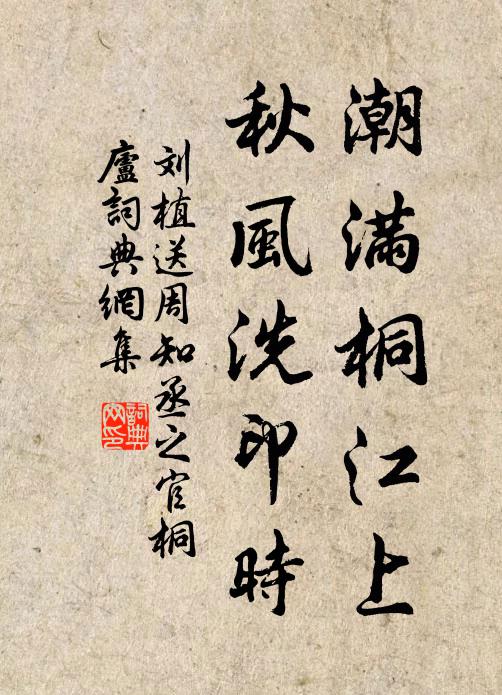 潮滿桐江上
秋風洗印時
刘植送周知丞之官桐
廬詞典網集
詞典
网印